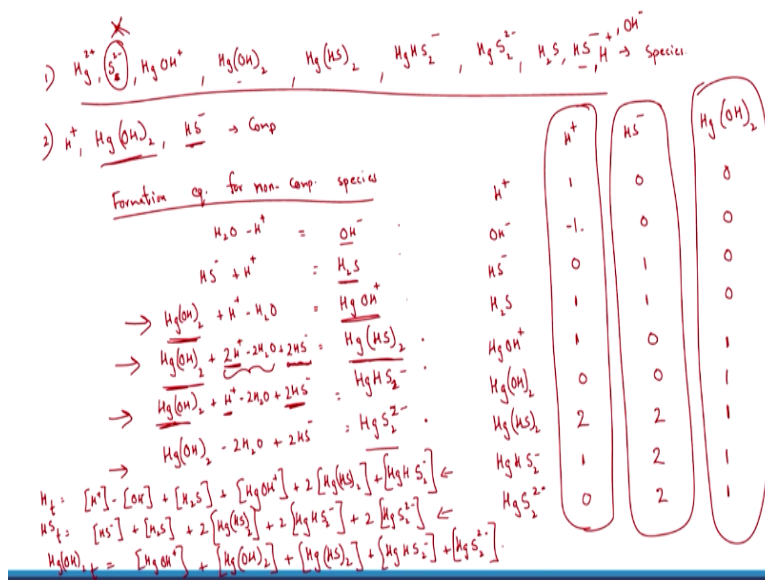 1) Hg²⁺, S₂²⁻, HgOH⁺, Hg(OH)₂, Hg(HS)₂, HgHS₂⁻, HgS₂²⁻, H₂S, HS⁻, H⁺, OH⁻ → Species
2) H⁺, Hg(OH)₂, HS⁻ → Comp
Formation eq. for non-comp. species
H₂O - H⁺ = OH⁻
HS⁻ + H⁺ = H₂S
→ Hg(OH)₂ + H⁺ - H₂O = HgOH⁺
→ Hg(OH)₂ + 2H⁺ - 2H₂O + 2HS⁻ = Hg(HS)₂
→ Hg(OH)₂ + H⁺ - 2H₂O + 2HS⁻ = HgHS₂⁻
→ Hg(OH)₂ - 2H₂O + 2HS⁻ = HgS₂²⁻
H⁺ HS⁻ Hg(OH)₂
H⁺ 1 0 0
OH⁻ -1. 0 0
HS⁻ 0 1 0
H₂S 1 1 0
HgOH⁺ 1 0 1
Hg(OH)₂ 0 0 1
Hg(HS)₂ 2 2 1
HgHS₂⁻ 1 2 1
HgS₂²⁻ 0 2 1
Hₜ = [H⁺] - [OH⁻] + [H₂S] + [HgOH⁺] + 2[Hg(HS)₂] + [HgHS₂⁻] ←
HSₜ = [HS⁻] + [H₂S] + 2[Hg(HS)₂] + 2[HgHS₂⁻] + 2[HgS₂²⁻] ←
Hg(OH)₂ₜ = [HgOH⁺] + [Hg(OH)₂] + [Hg(HS)₂] + [HgHS₂⁻] + [HgS₂²⁻].